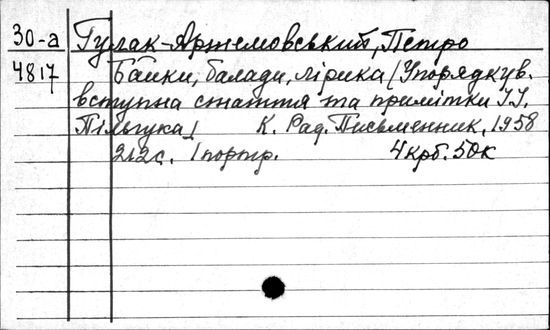 30-а Гулак-Артемовський, Петро
4817 Байки, балади, лірика / Упорядкув.
вступна стаття та примітки І.І.
Пільгука /   К. Рад. Письменник, 1958
212с. 1 портр.   4 крб. 50к